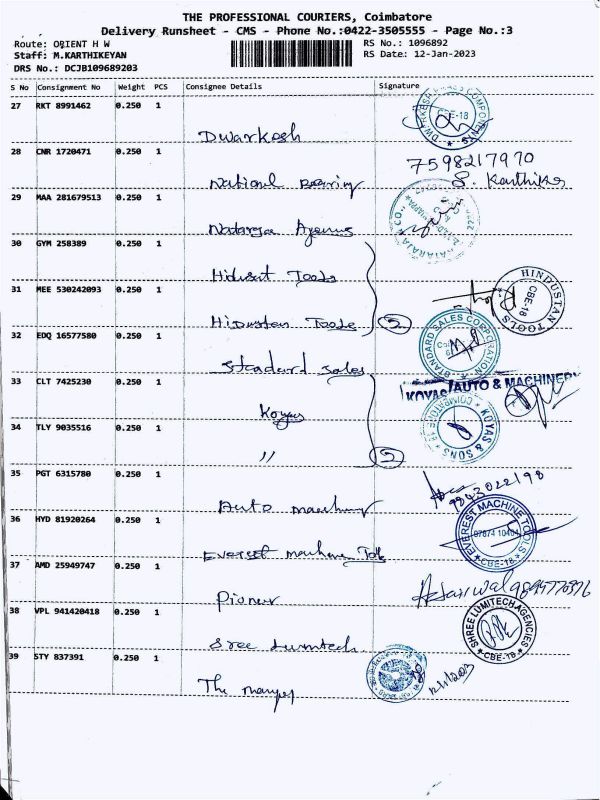 THE PROFESSIONAL COURIERS, Coimbatore
Delivery Runsheet - CMS - Phone No.:0422-3505555 - Page No.:3
Route: ORIENT H W
RS No.: 1096892
Staff: M.KARTHIKEYAN
RS Date: 12-Jan-2023
DRS No.: DCJB109689203
S No Consignment No Weight PCS Consignee Details Signature
27 RKT 8991462 0.250 1
Dwarkesh
CBE-18
28 CNR 1720471 0.250 1
7598217970
National Bearing
S. Karthike
29 MAA 281679513 0.250 1
NATARAJA & CO.,
30 GYM 258389 0.250 1
Tools
31 MEE 530242093 0.250 1
HINDUSTAN TOOLS
CBE-18
Hidusten Tools
2
32 EDQ 16577580 0.250 1
STANDARD SALES CORPORATION
Stadard Sales
33 CLT 7425230 0.250 1
KOYAS AUTO & MACHINERY
Koyas
34 TLY 9035516 0.250 1
KOYAS & SONS
COIMBATORE-18
〃
2
35 PGT 6315780 0.250 1
9843022198
Auto
36 HYD 81920264 0.250 1
EVEREST MACHINE TOOLS
CBE-18
37 AMD 25949747 0.250 1
Pioneer
38 VPL 941420418 0.250 1
SHREE LUMITECH AGENCIES
CBE-18
Sree
39 STY 837391 0.250 1
12/1/2023
The